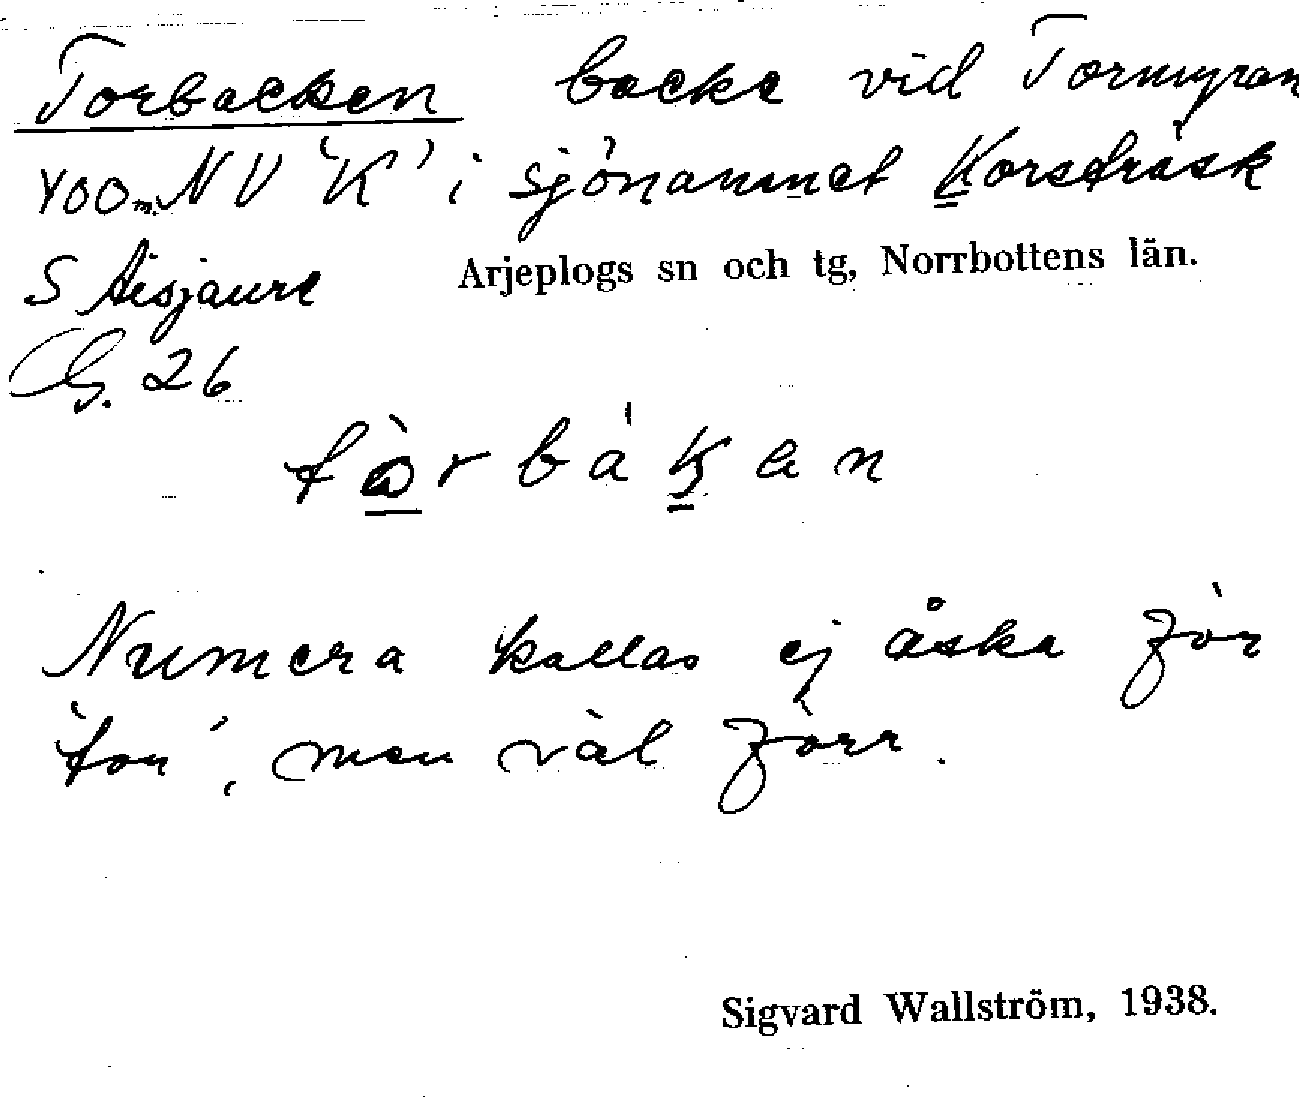 Torbacken backe vid Tormyran
400 m NV 'K' i sjönamnet Korsträsk
S Aisjaure Arjeplogs sn och tg, Norrbottens län.
G. 26
tòrbákan
Numera kallas ej åska för
'tor', men väl förr.
Sigvard Wallström, 1938.